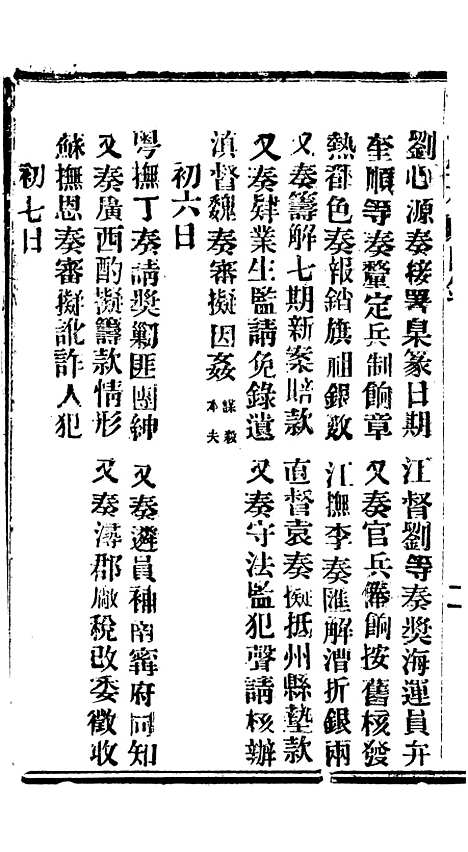 劉心源奏接署臬篆日期　江督劉等奏獎海運員弁
奎順等奏釐定兵制餉章　又奏官兵俸餉按舊核發
熱都色奏報鎿旗租銀數　江撫李奏匯解漕折銀兩
又奏籌解七期新案賠款　直督袁奏擬抵州縣墊款
又奏肄業生監請免錄遺　又奏守法監犯聲請核辦
滇督魏奏審擬因姦謀殺本夫
初六日
粵撫丁奏請獎勦匪團紳　又奏遴員補南甯府同知
又奏廣西酌擬籌款情形　又奏潯郡廠稅改委徵收
蘇撫恩奏審擬訛詐人犯
初七日
二